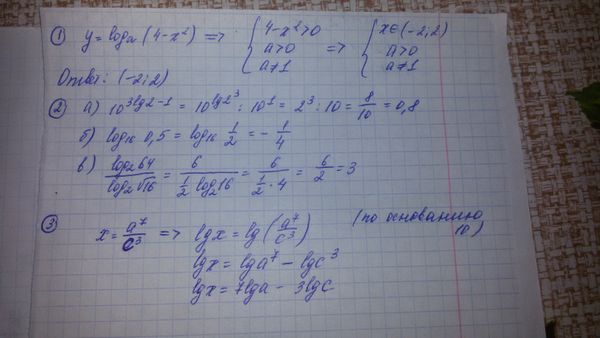 ① y = logₐ(4-x²) => { 4-x²>0 => { x∈(-2;2)
a>0 a>0
a≠1 a≠1
Ответ: (-2;2)
② а) 10^(3lg2-1) = 10^(lg2³) : 10¹ = 2³ : 10 = 8/10 = 0,8
б) log₁₆ 0,5 = log₁₆ 1/2 = - 1/4
в) log₂64/log₂√16 = 6/(1/2 log₂16) = 6/(1/2 · 4) = 6/2 = 3
③ x = a⁷/c³ => lgx = lg(a⁷/c³) (по основанию 10)
lgx = lga⁷ - lgc³
lgx = 7lga - 3lgc